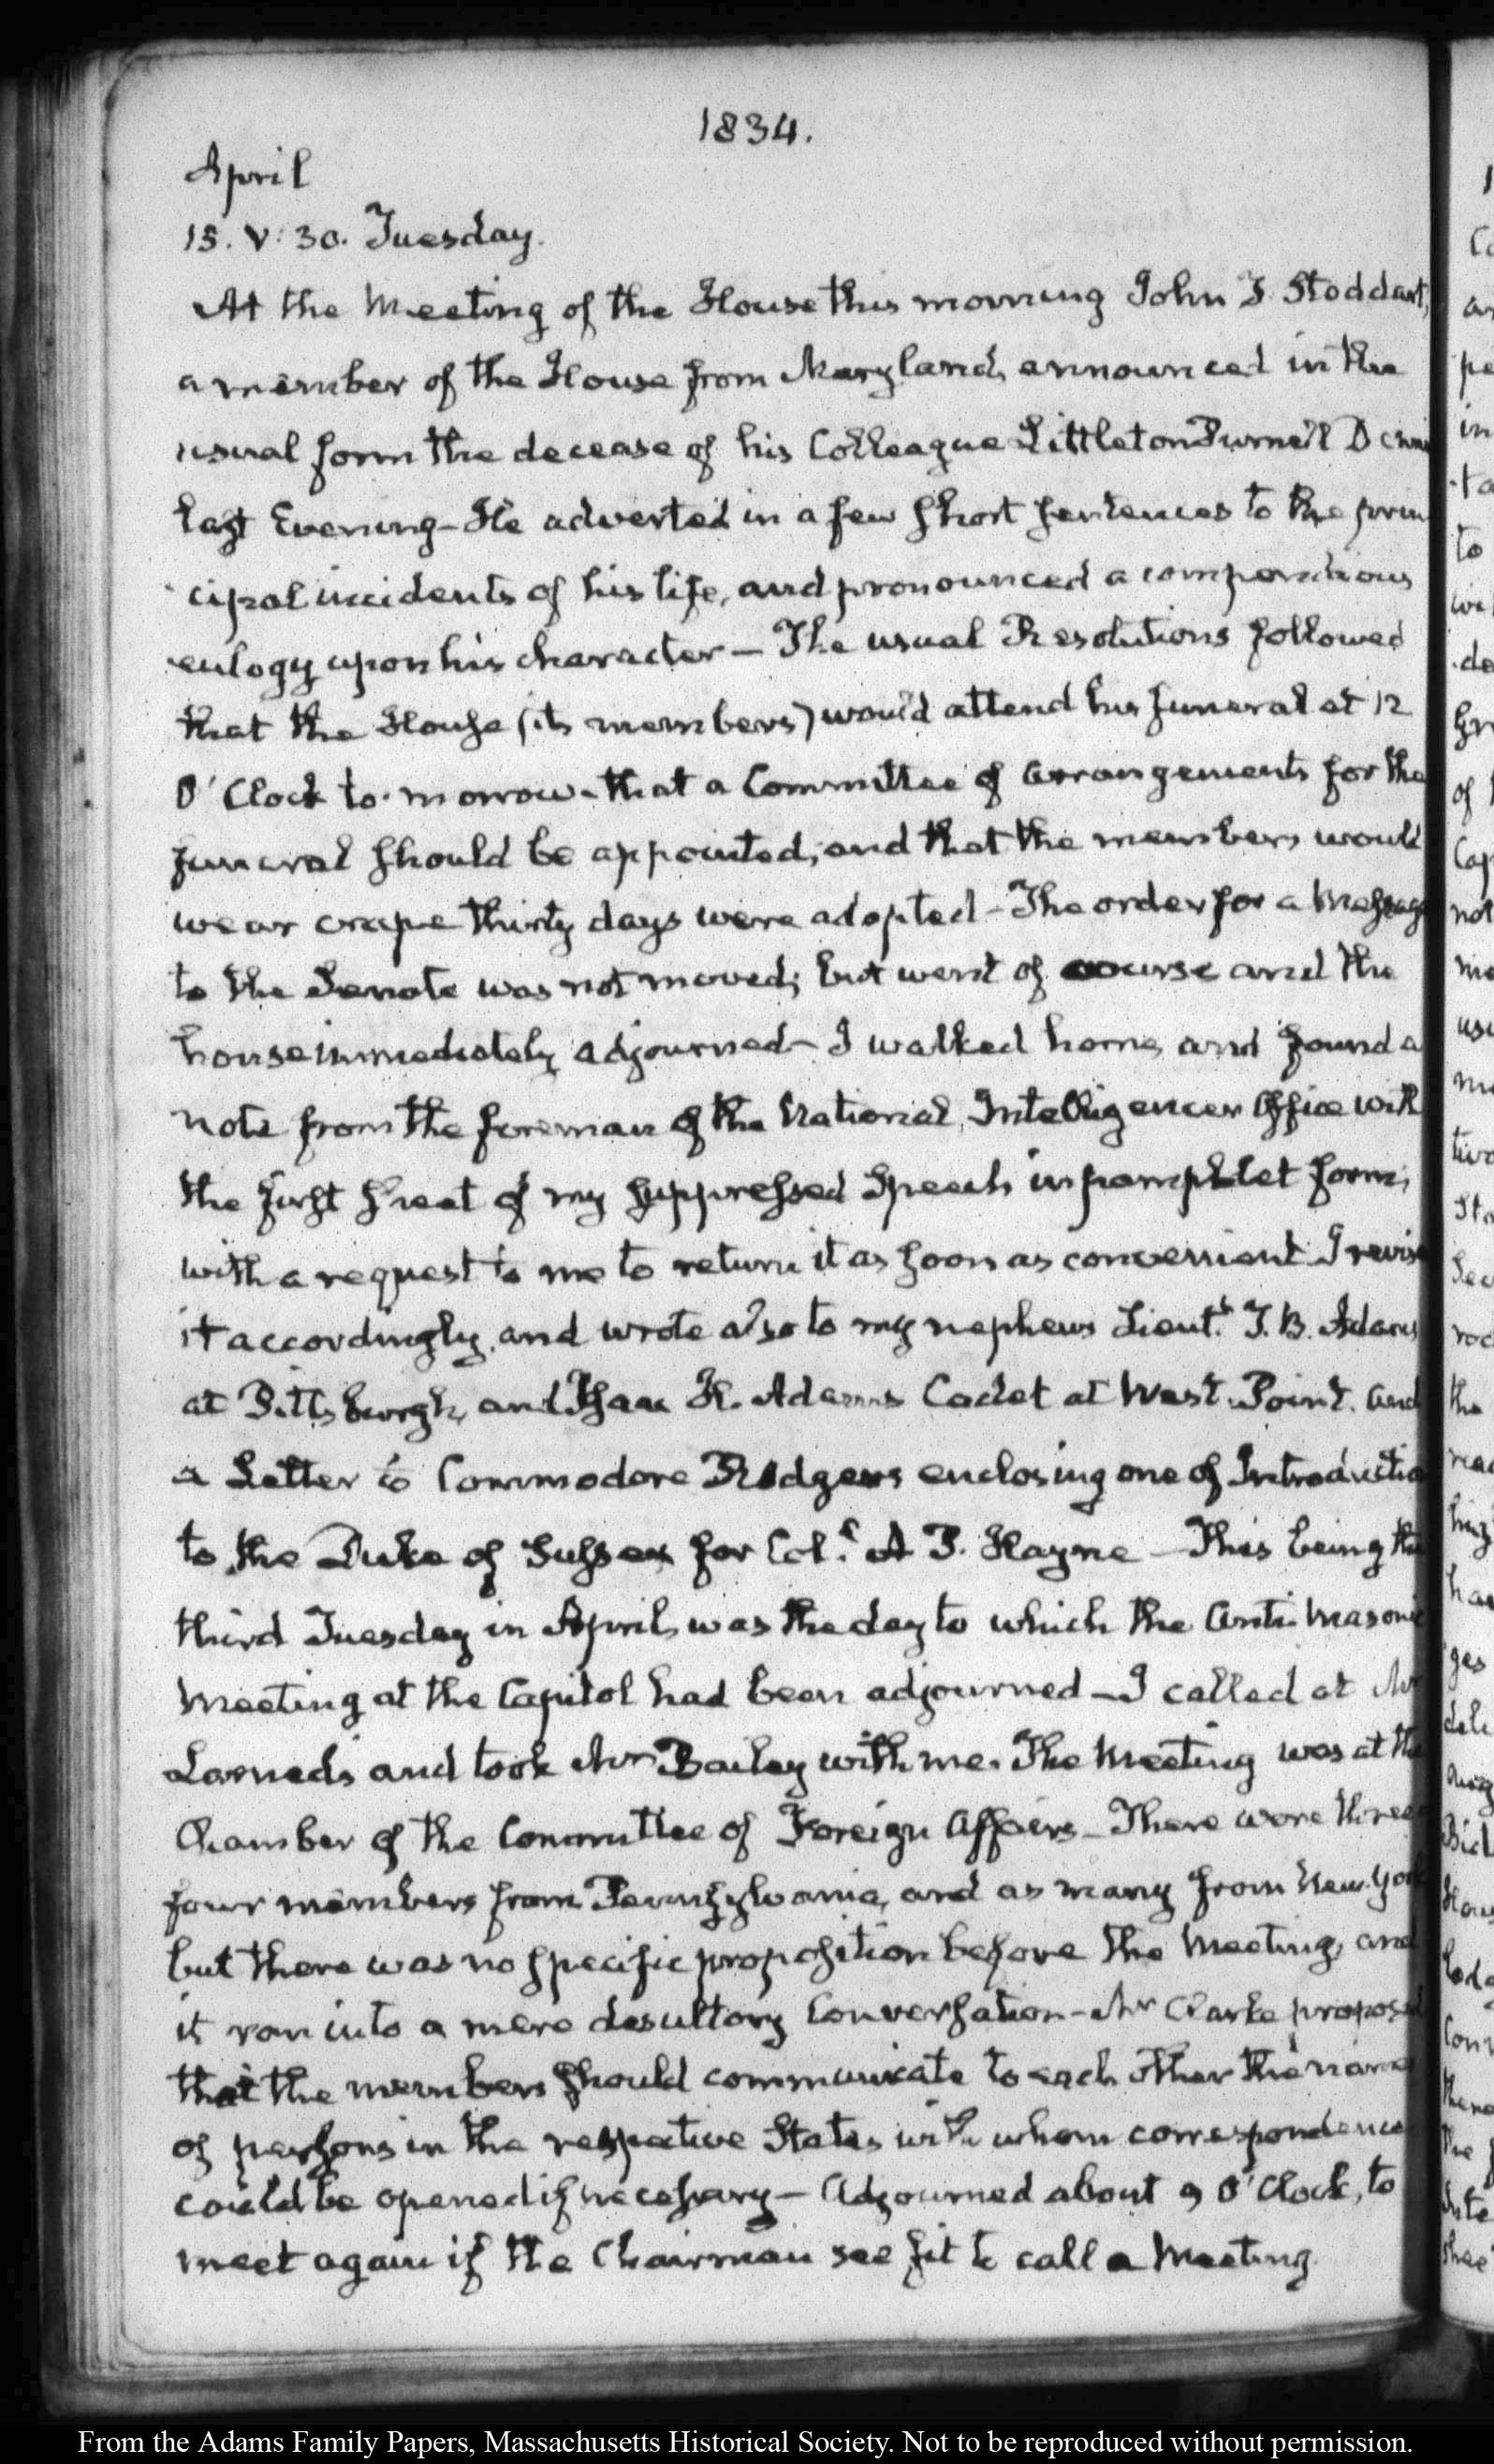 1834.
April
15. V: 30. Tuesday.
At the Meeting of the House this morning John T. Stoddart,
a member of the House from Maryland, announced in the
usual form the decease of his Colleague Littleton Purnell Denni
last Evening - He adverted in a few short sentences to the prin
cipal incidents of his life, and pronounced a compendious
eulogy upon his character — The usual Resolutions followed
that the House (its members) would attend his funeral at 12
O'Clock to-morrow - that a Committee of arrangements for the
funeral should be appointed; and that the members would
wear crape thirty days were adopted - The order for a Message
to the Senate was not moved; but went of course and the
house immediately adjourned - I walked home, and found a
note from the foreman of the National Intelligencer Office with
the first sheet of my suppressed Speech in pamphlet form,
with a request to me to return it as soon as convenient. I revise
it accordingly, and wrote also to my nephews Lieutt. T. B. Adams
at Pittsburgh, and Isaac H. Adams Cadet at West-Point. and
a Letter to Commodore Rodgers enclosing one of Introductio
to the Duke of Sussex for Coll. A P. Hayne — This being the
third Tuesday in April, was the day to which the Anti-Masonic
Meeting at the Capitol had been adjourned — I called at Mr
Larned's and took Mr Bailey with me. The Meeting was at the
Chamber of the Committee of Foreign Affairs - There were three
four members from Pennsylvania, and as many from New-York
but there was no specific proposition before the Meeting, and
it ran into a mere desultory Conversation - Mr Clarke proposed
that the members should communicate to each other the name
of persons in the respective States with whom correspondence
could be opened if necessary — Adjourned about 9 O'Clock, to
meet again if the Chairman see fit to call a Meeting.
From the Adams Family Papers, Massachusetts Historical Society. Not to be reproduced without permission.